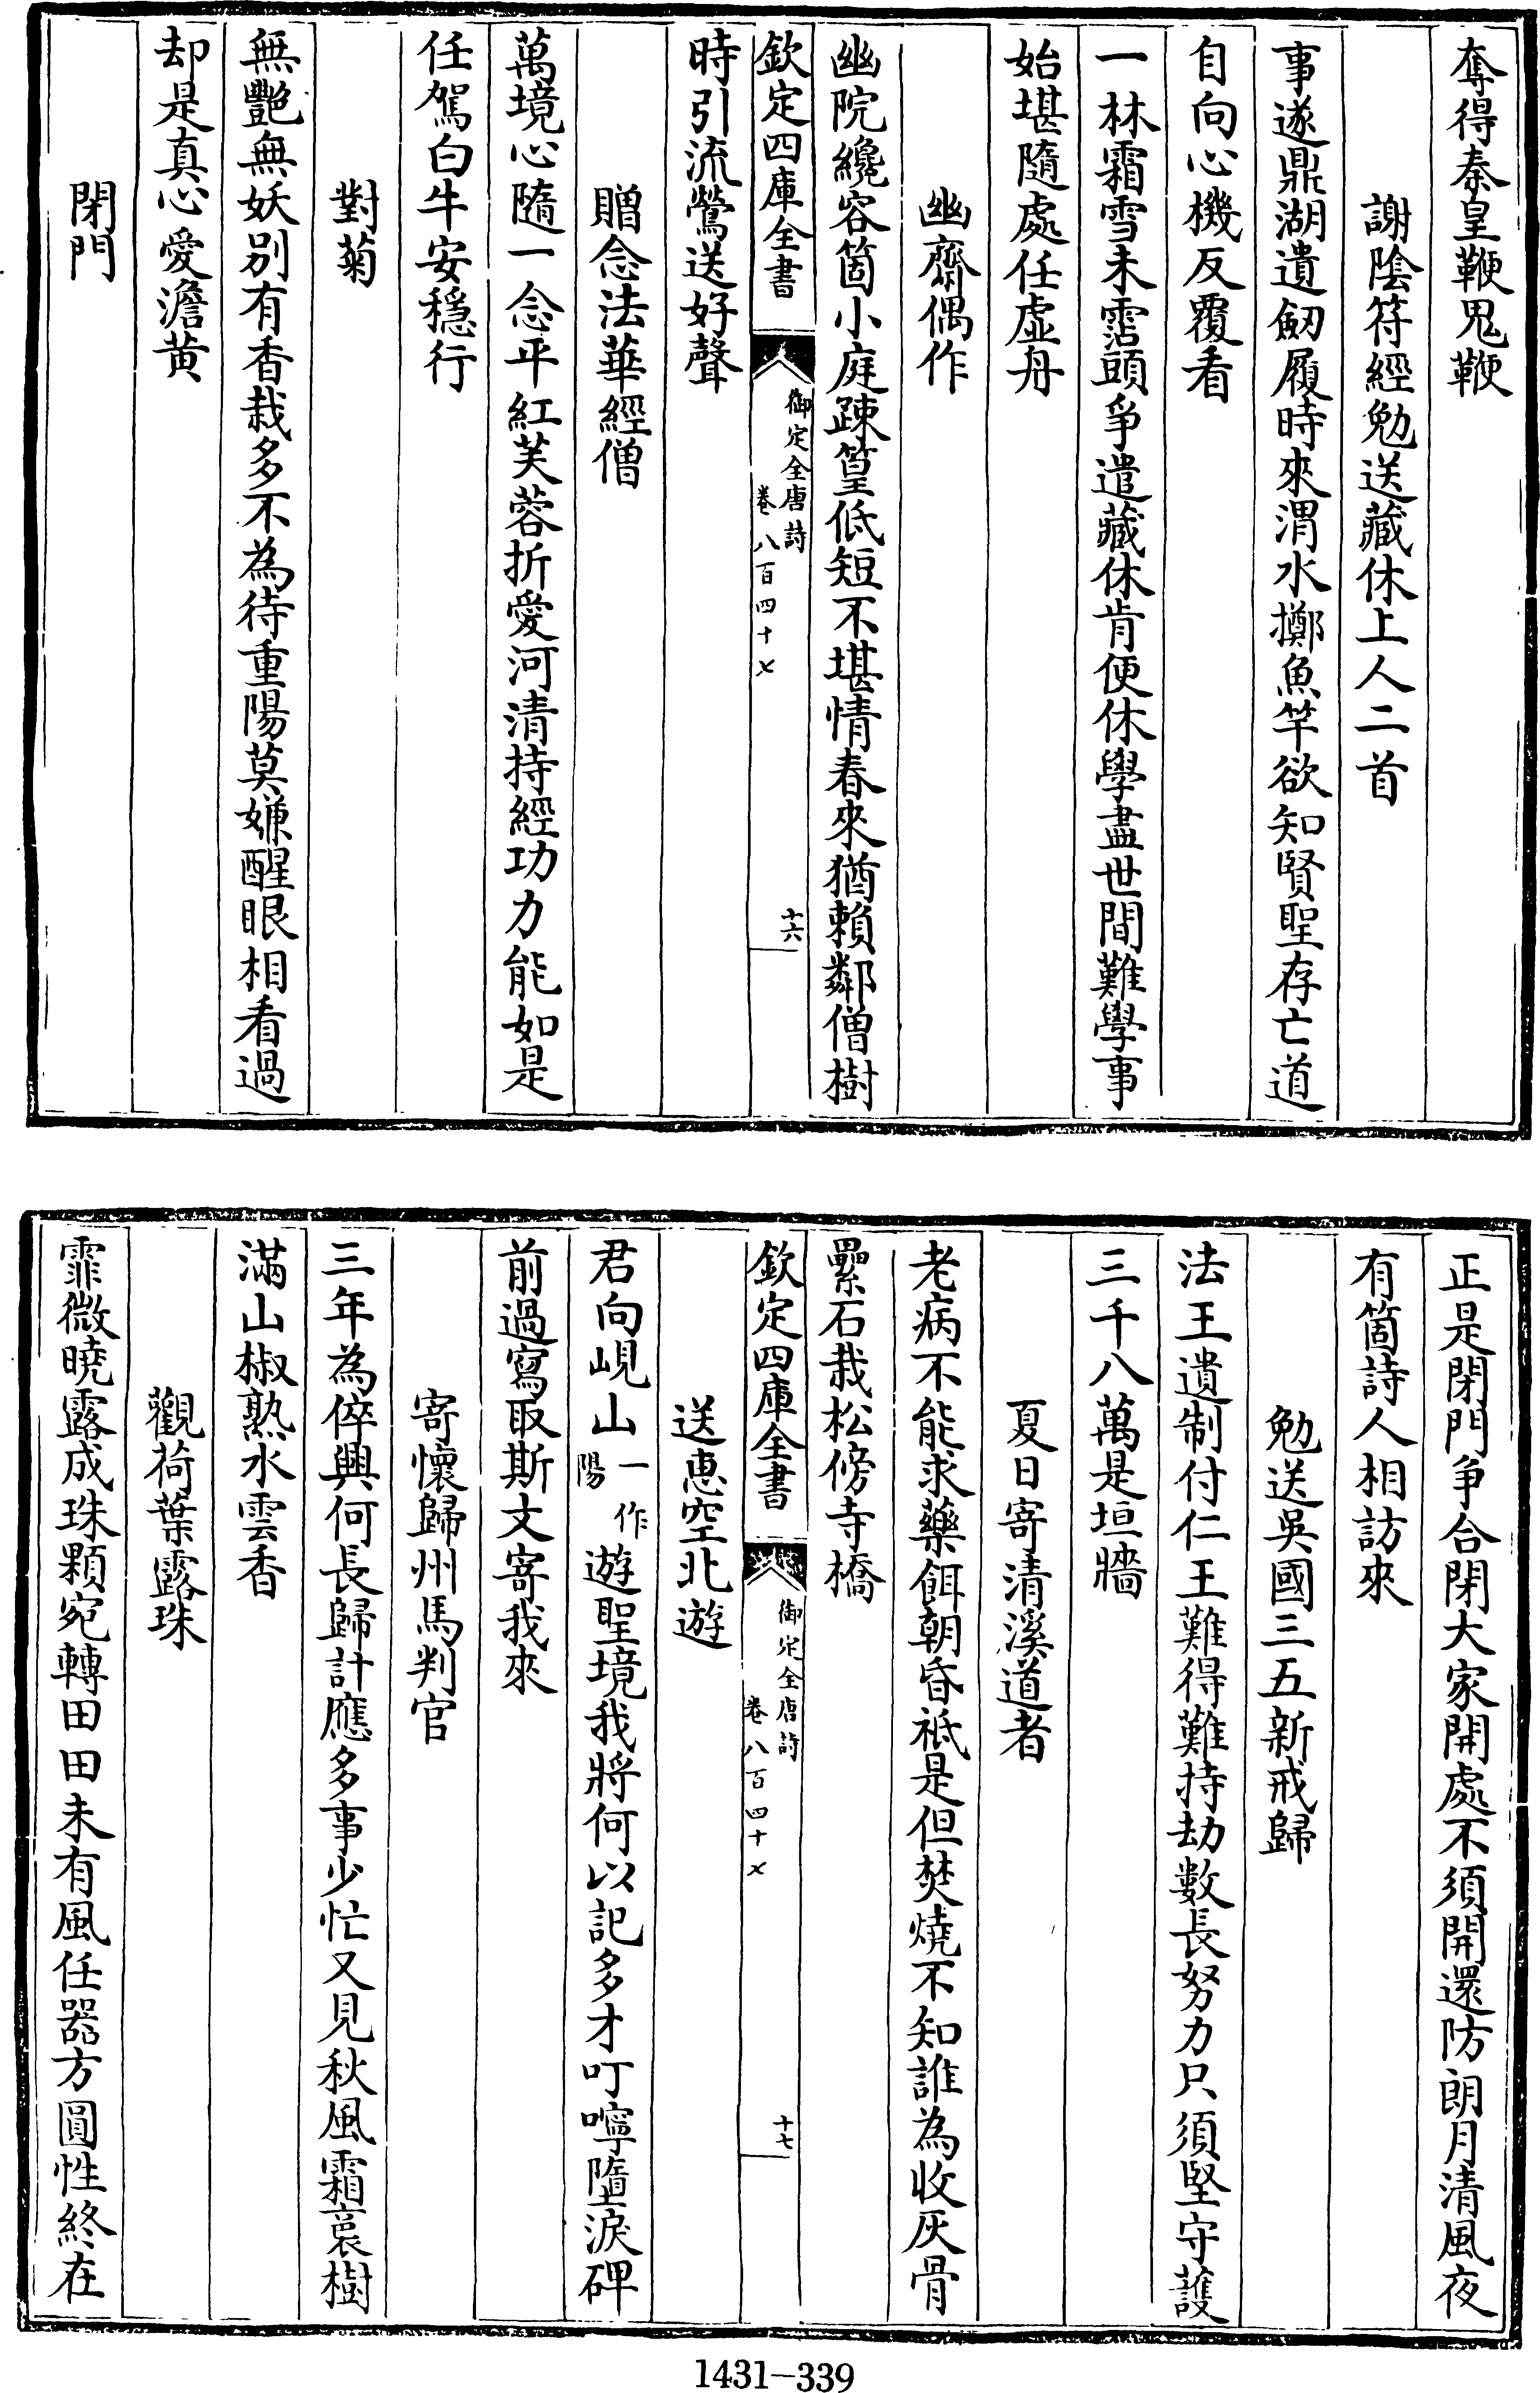 奪得秦皇鞭鬼鞭
謝陰符經勉送藏休上人二首
事遂鼎湖遺劒履時來渭水擲魚竿欲知賢聖存亡道
自向心機反覆看
一林霜雪未霑頭爭遣藏休肯便休學盡世間難學事
始堪隨處任虛舟
幽齋偶作
幽院纔容箇小庭疎篁低短不堪情春來猶賴鄰僧樹
欽定四庫全書
御定全唐詩
卷八百四十七
十六
時引流鶯送好聲
贈念法華經僧
萬境心隨一念平紅芙蓉折愛河清持經功力能如是
任駕白牛安穩行
對菊
無艷無妖別有香栽多不為待重陽莫嫌醒眼相看過
却是真心愛澹黃
閉門
正是閉門爭合閉大家開處不須開還防朗月清風夜
有箇詩人相訪來
勉送吳國三五新戒歸
法王遺制付仁王難得難持劫數長努力只須堅守護
三千八萬是垣牆
夏日寄清溪道者
老病不能求藥餌朝昏祗是但焚燒不知誰為收灰骨
壘石栽松傍寺橋
欽定四庫全書
御定全唐詩
卷八百四十七
十七
送惠空北遊
君向峴山一作陽遊聖境我將何以記多才叮嚀墮淚碑
前過寫取斯文寄我來
寄懷歸州馬判官
三年為倅興何長歸計應多事少忙又見秋風霜裛樹
滿山椒熟水雲香
觀荷葉露珠
霏微曉露成珠顆宛轉田田未有風任器方圓性終在
1431-339